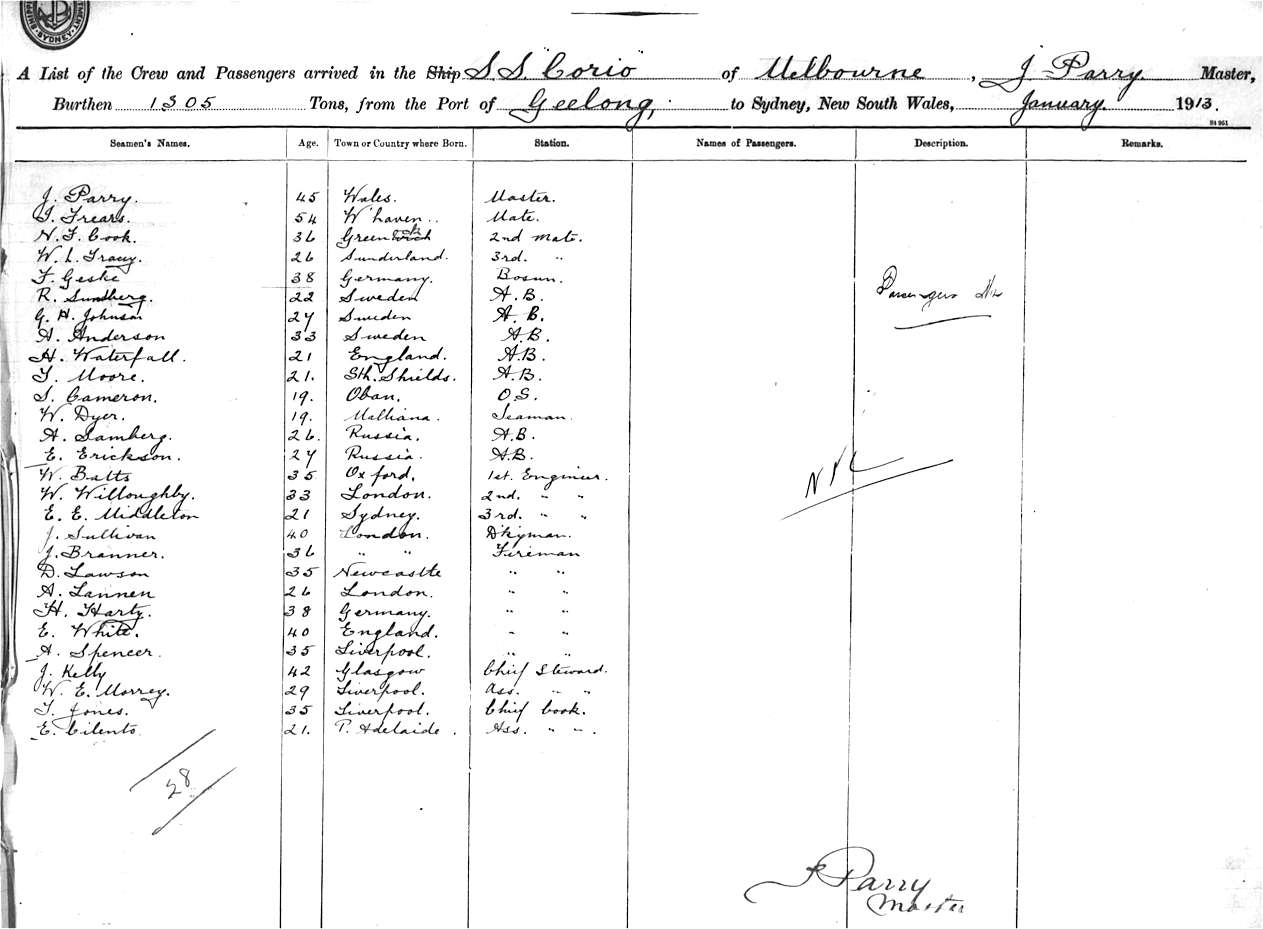 SYDNEY
A List of the Crew and Passengers arrived in the Ship S.S. Corio of Melbourne, J Parry Master,
Burthen 1305 Tons, from the Port of Geelong, to Sydney, New South Wales, January. 1913.
Seamen's Names. Age. Town or Country where Born. Station. Names of Passengers. Description. Remarks.
J. Parry. 45 Wales. Master.
54 W'haven.. Mate.
N. F. Cook. 36 2nd Mate.
W. L. Tracy. 26 Sunderland. 3rd. "
F. Geske 38 Germany. Bosun.
R. Sundberg. 22 Sweden A.B. Passengers Nil
G. H. Johnson 27 Sweden A.B.
A. Anderson 33 Sweden A.B.
H. Waterfall. 21 England. A.B.
T. Moore. 21. Sth. Shields. A.B.
Cameron. 19. Oban. O.S.
W. Dyer. 19. Seaman.
A. Samberg. 26. Russia. A.B.
E. Erickson. 27 Russia. A.B.
W. Batts 35 Oxford. 1st. Engineer.
W. Willoughby. 33 London. 2nd. " "
E. E. Middleton 21 Sydney. 3rd. " "
J. Sullivan 40 London. D'kyman.
J. Branner. 36 " " Fireman
D. Lawson 35 Newcastle " "
A. Lannen 26 London. " "
H. Harty. 38 Germany. " "
E. White. 40 England. " "
A. Spencer. 35 Liverpool. " "
J. Kelly 42 Glasgow Chief Steward.
W. E. Morrey. 29 Liverpool. Ass. " "
T. Jones. 35 Liverpool. Chief Cook.
E. Cilento 21. P. Adelaide. Ass. " ".
28
J Parry
Master